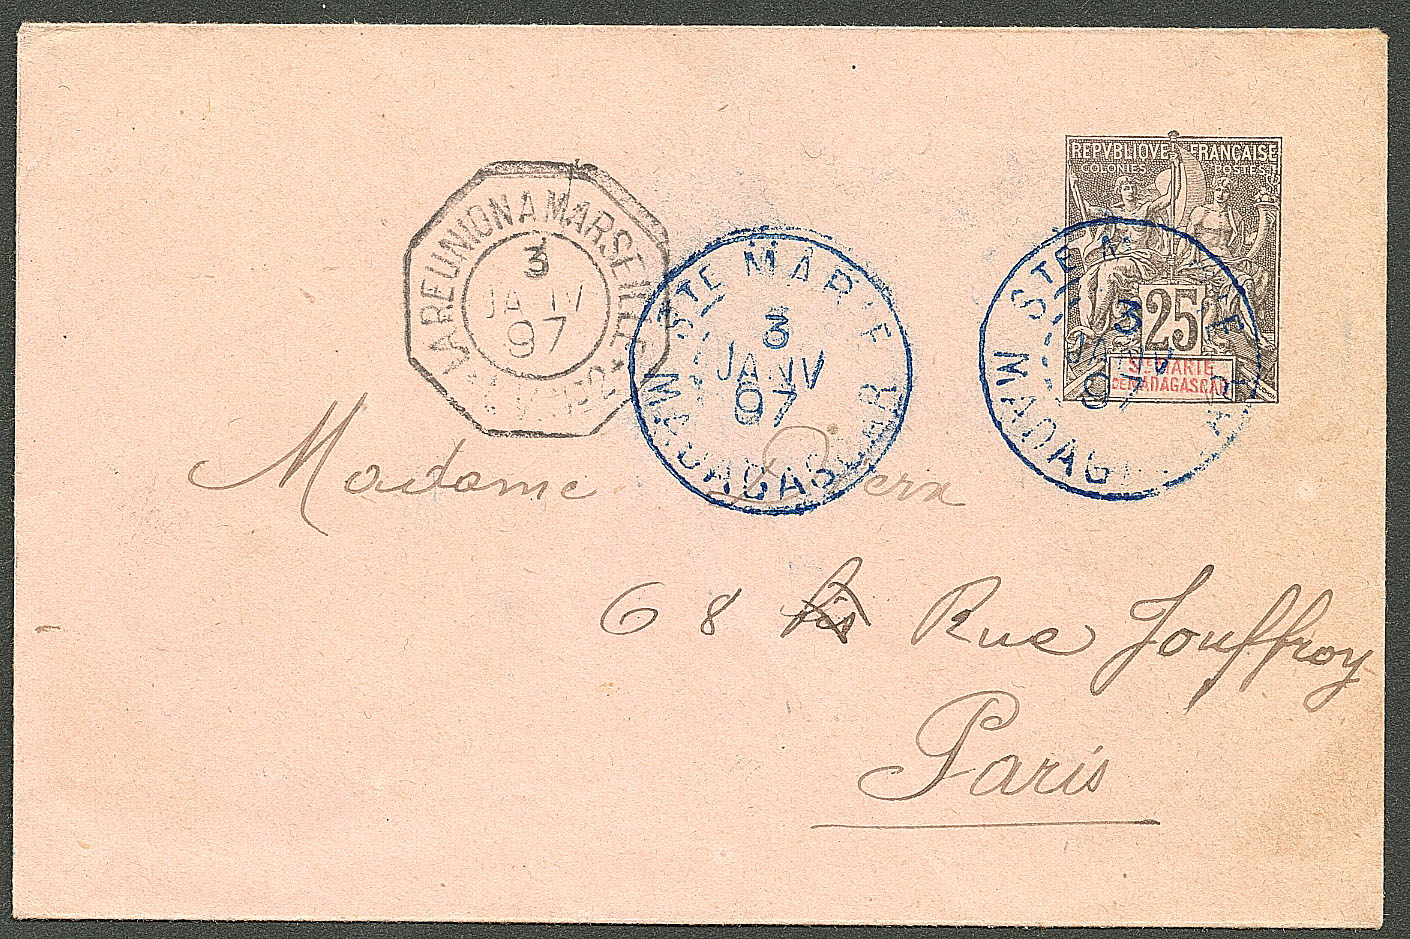 REPVBLIQVE FRANÇAISE
COLONIES POSTES
25
STE MARIE
DE MADAGASCAR
LA REUNION A MARSEILLE
3
JANV
97
STE MARIE
3
JANV
97
MADAGASCAR
STE MARIE
3
JANV
97
MADAGASCAR
Madame
68 bis Rue Jouffroy
Paris